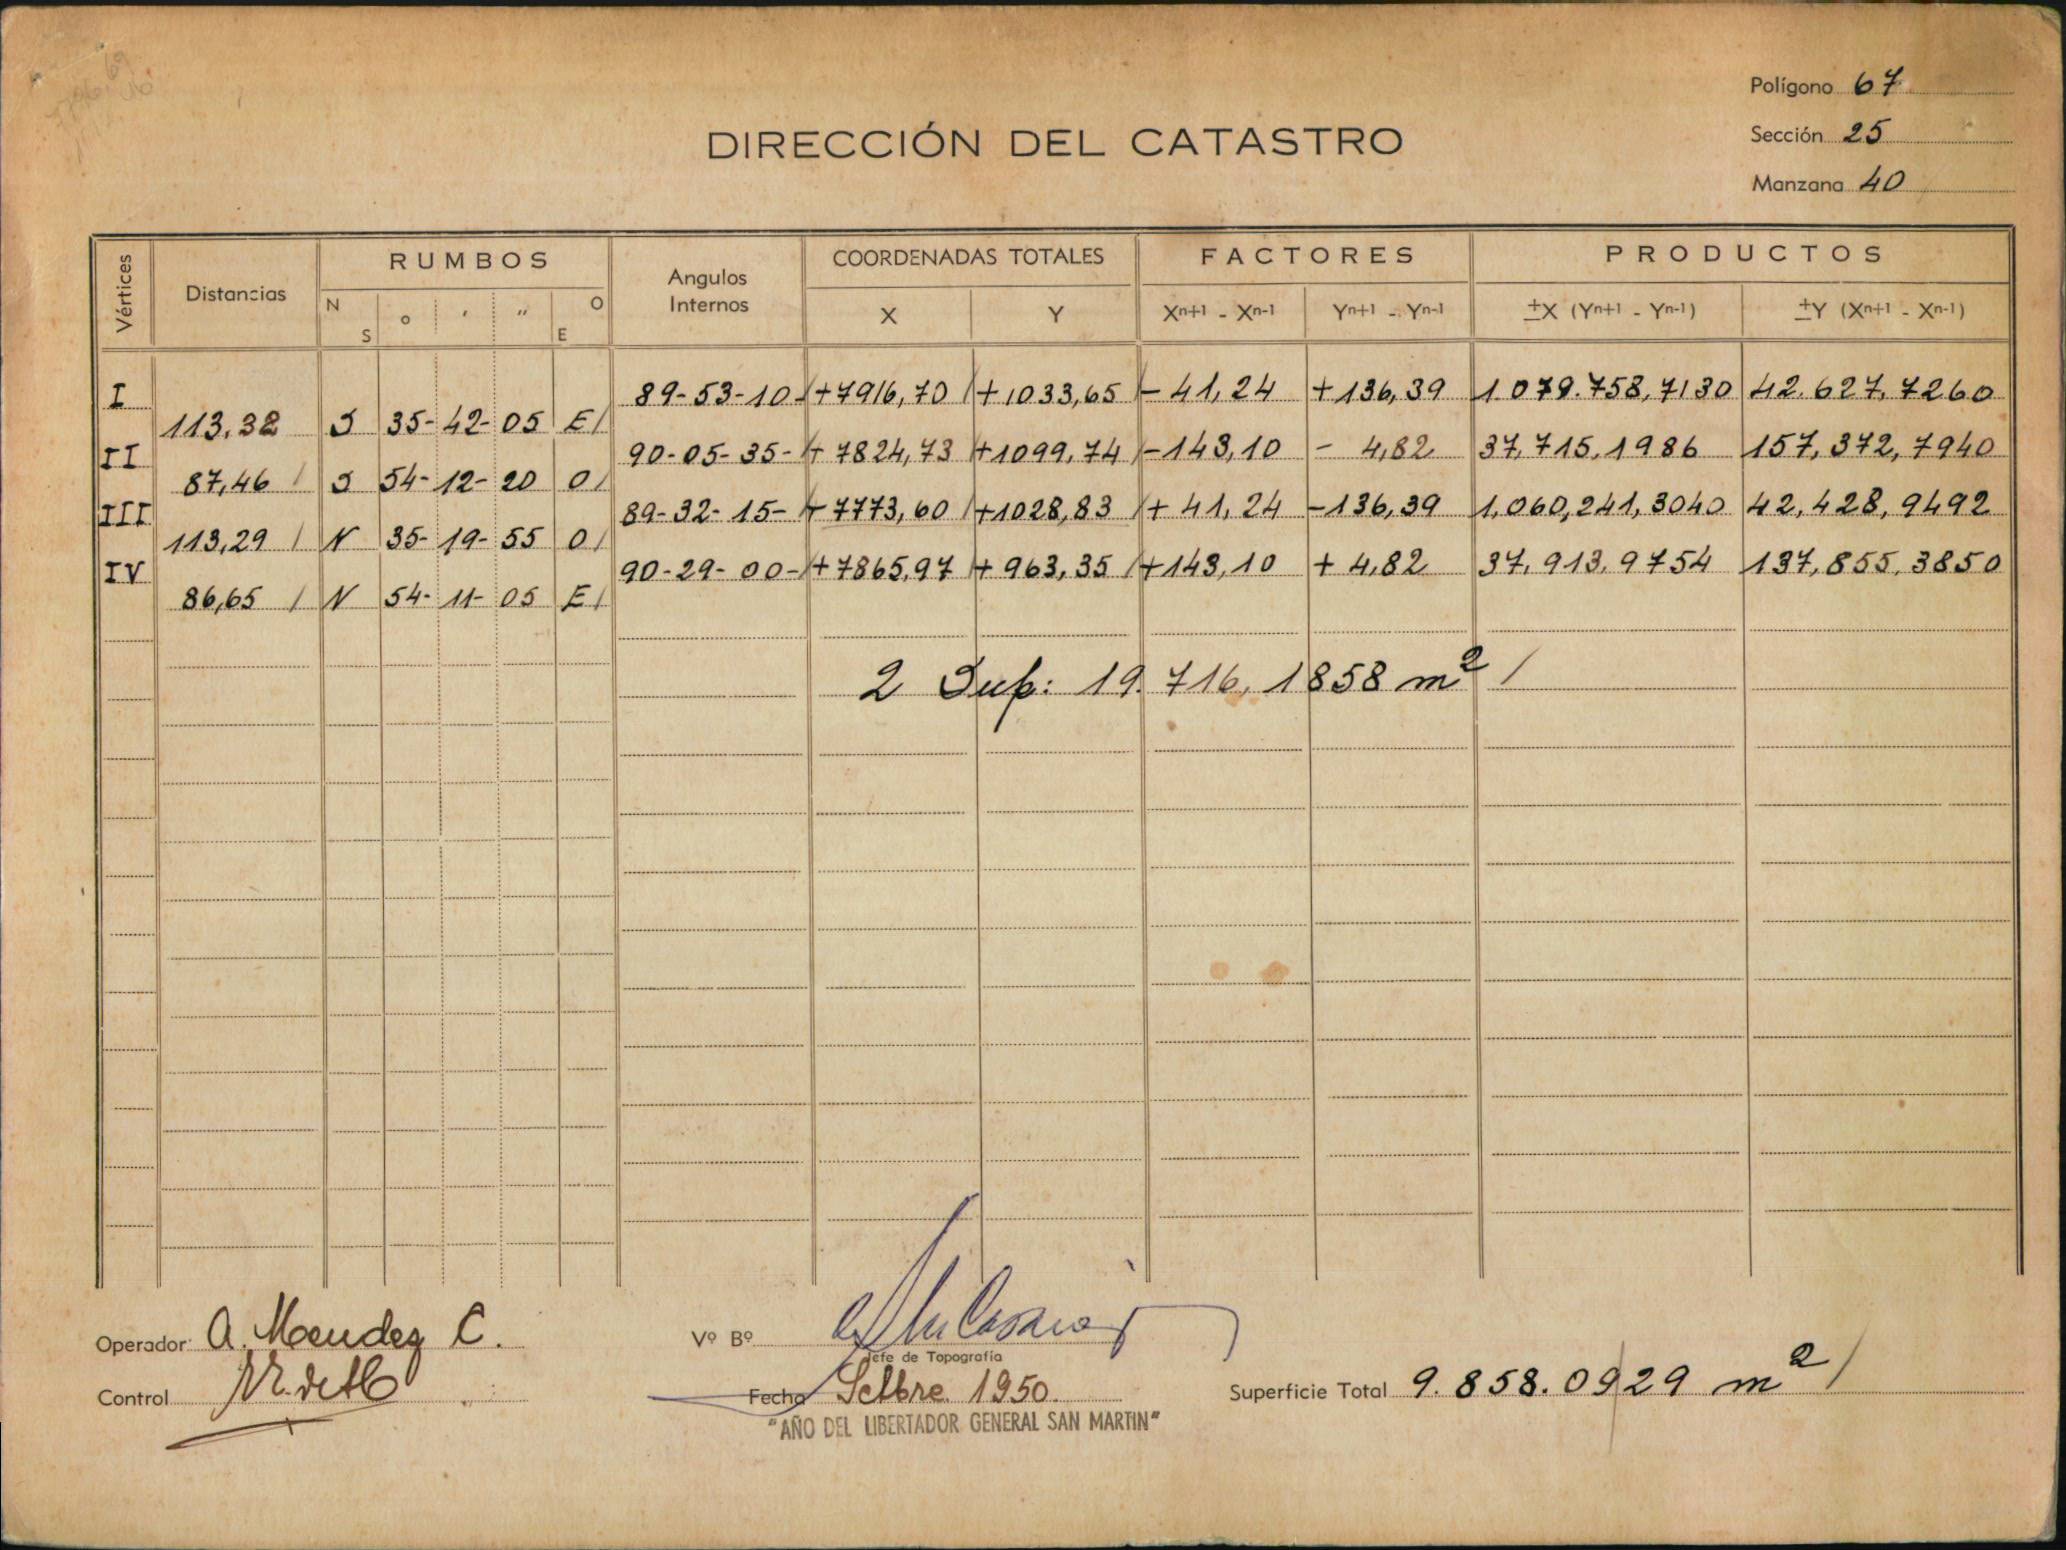 Polígono 67
DIRECCIÓN DEL CATASTRO
Sección 25
Manzana 40
Vértices Distancias RUMBOS Angulos Internos COORDENADAS TOTALES FACTORES PRODUCTOS
N S o ' " O E X Y Xn+1 - Xn-1 Yn+1 - Yn-1 ±X (Yn+1 - Yn-1) ±Y (Xn+1 - Xn-1)
I 89-53-10- +7916,70 / +1033,65 / -41,24 +136,39 1.079.758,7130 42.627,7260
113,32 S 35-42-05 E /
II 90-05-35- +7824,73 +1099,74 / -143,10 - 4,82 37.715,1986 157,372,7940
87,46 / S 54-12-20 O /
III 89-32-15- +7773,60 / +1028,83 / + 41,24 -136,39 1,060,241,3040 42,428,9492
113,29 / N 35-19-55 O /
IV 90-29-00- +7865,97 / +963,35 / +143,10 + 4,82 37,913,9754 137,855,3850
86,65 / N 54-11-05 E /
2 Sup: 19.716,1858 m² /
Operador A. Mendez C.
Vº Bº
Jefe de Topografía
Control
Fecha Setbre. 1950.
Superficie Total 9.858.0929 m² /
"AÑO DEL LIBERTADOR GENERAL SAN MARTIN"